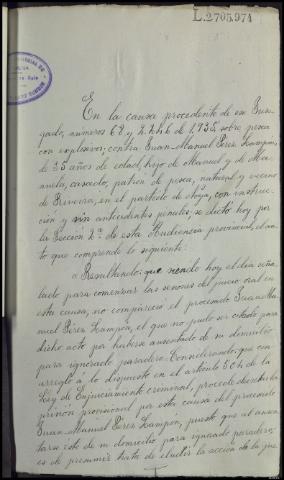 L.2705.971
En la causa procedente de ese Juz-
gado, números 62 y 2. de 1.934, sobre pesca
con explosivos, contra Juan-Manuel Pérez Zampón,
de 35 años de edad, hijo de Manuel y de Ma-
nuela, casado, patrón de pesca, natural y vecino
de Riveira, en el partido de Noya, con instruc-
ción y sin antecedentes penales, se dictó hoy por
la Sección 2ª de esta Audiencia provincial, el au-
to que comprende lo siguiente:
"Resultando: que siendo hoy el día seña-
lado para comenzar las sesiones del juicio oral en
esta causa, no compareció el procesado Juan Ma-
nuel Pérez Zampón, el que no pudo ser citado para
dicho acto por haberse ausentado de su domicilio
para ignorado paradero. Considerando: que con
arreglo a lo dispuesto en el artículo 504 de la
Ley de Enjuiciamiento criminal, procede decretar la
prisión provisional por esta causa del procesado
Juan-Manuel Pérez Zampón, puesto que al ausen-
tarse éste de su domicilio para ignorado paradero,
es de presumir trata de eludir la acción de la jus-